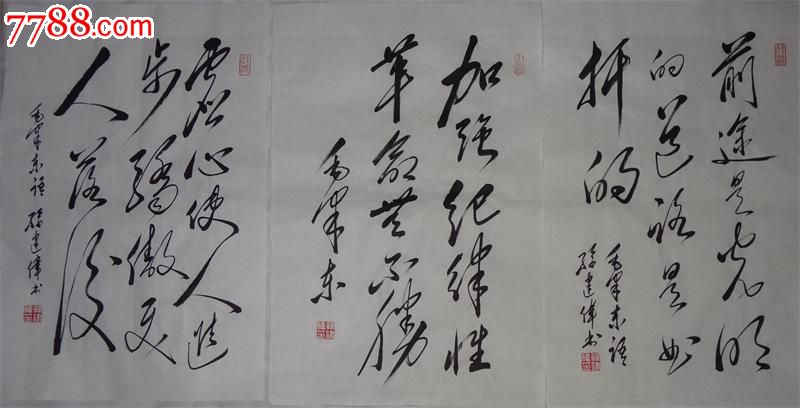 7788.com
前途是光明
的道路是曲
折的
毛泽东语
孫建偉书
加强纪律性
革命无不胜
毛泽东
虚心使人進
步骄傲使
人落後
毛泽东语 孫建偉书